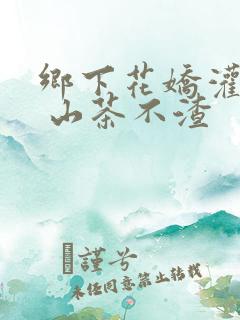 鄉下花嬌灌
山茶不渣
謹兮
未任同意禁止转载